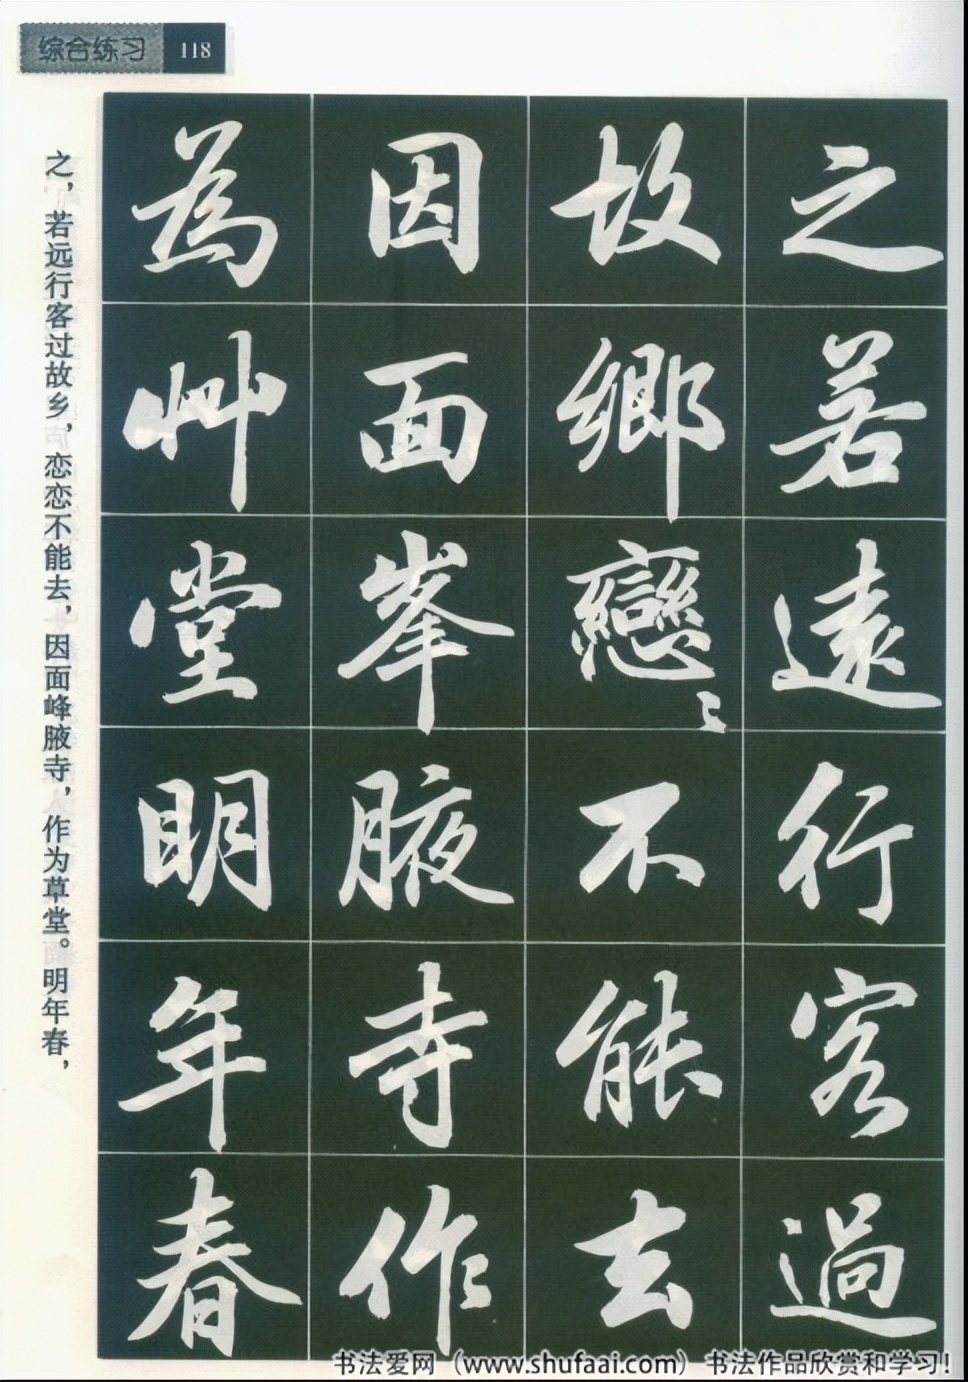 综合练习 118
之若遠行客過
故鄉戀〻不能去
因面峯腋寺作
為艸堂明年春
之，若远行客过故乡，恋恋不能去，因面峰腋寺，作为草堂。明年春，
书法爱网（www.shufaai.com）书法作品欣赏和学习！